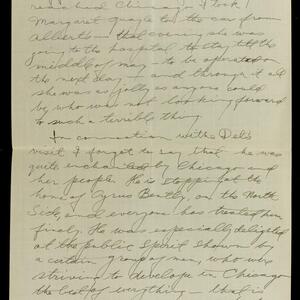 reached Chicago I took
Margaret Quayle to the car from
Alberts - that evening she was
going to the hospital to stay till the
middle of May - to be operated on
the next day - and through it all
she was as jolly as anyone could
be who was not looking forward
to such a terrible thing.
In connection with Del's
visit I forgot to say that he was
quite enchanted by Chicago and
her people. He is stopping at the
home of Cyrus Bently, on the North
Side, and everyone has treated him
finely. He was especially delighted
at the public spirit shown by
a certain group of men, who were
striving to develope in Chicago
the best of everything - that is